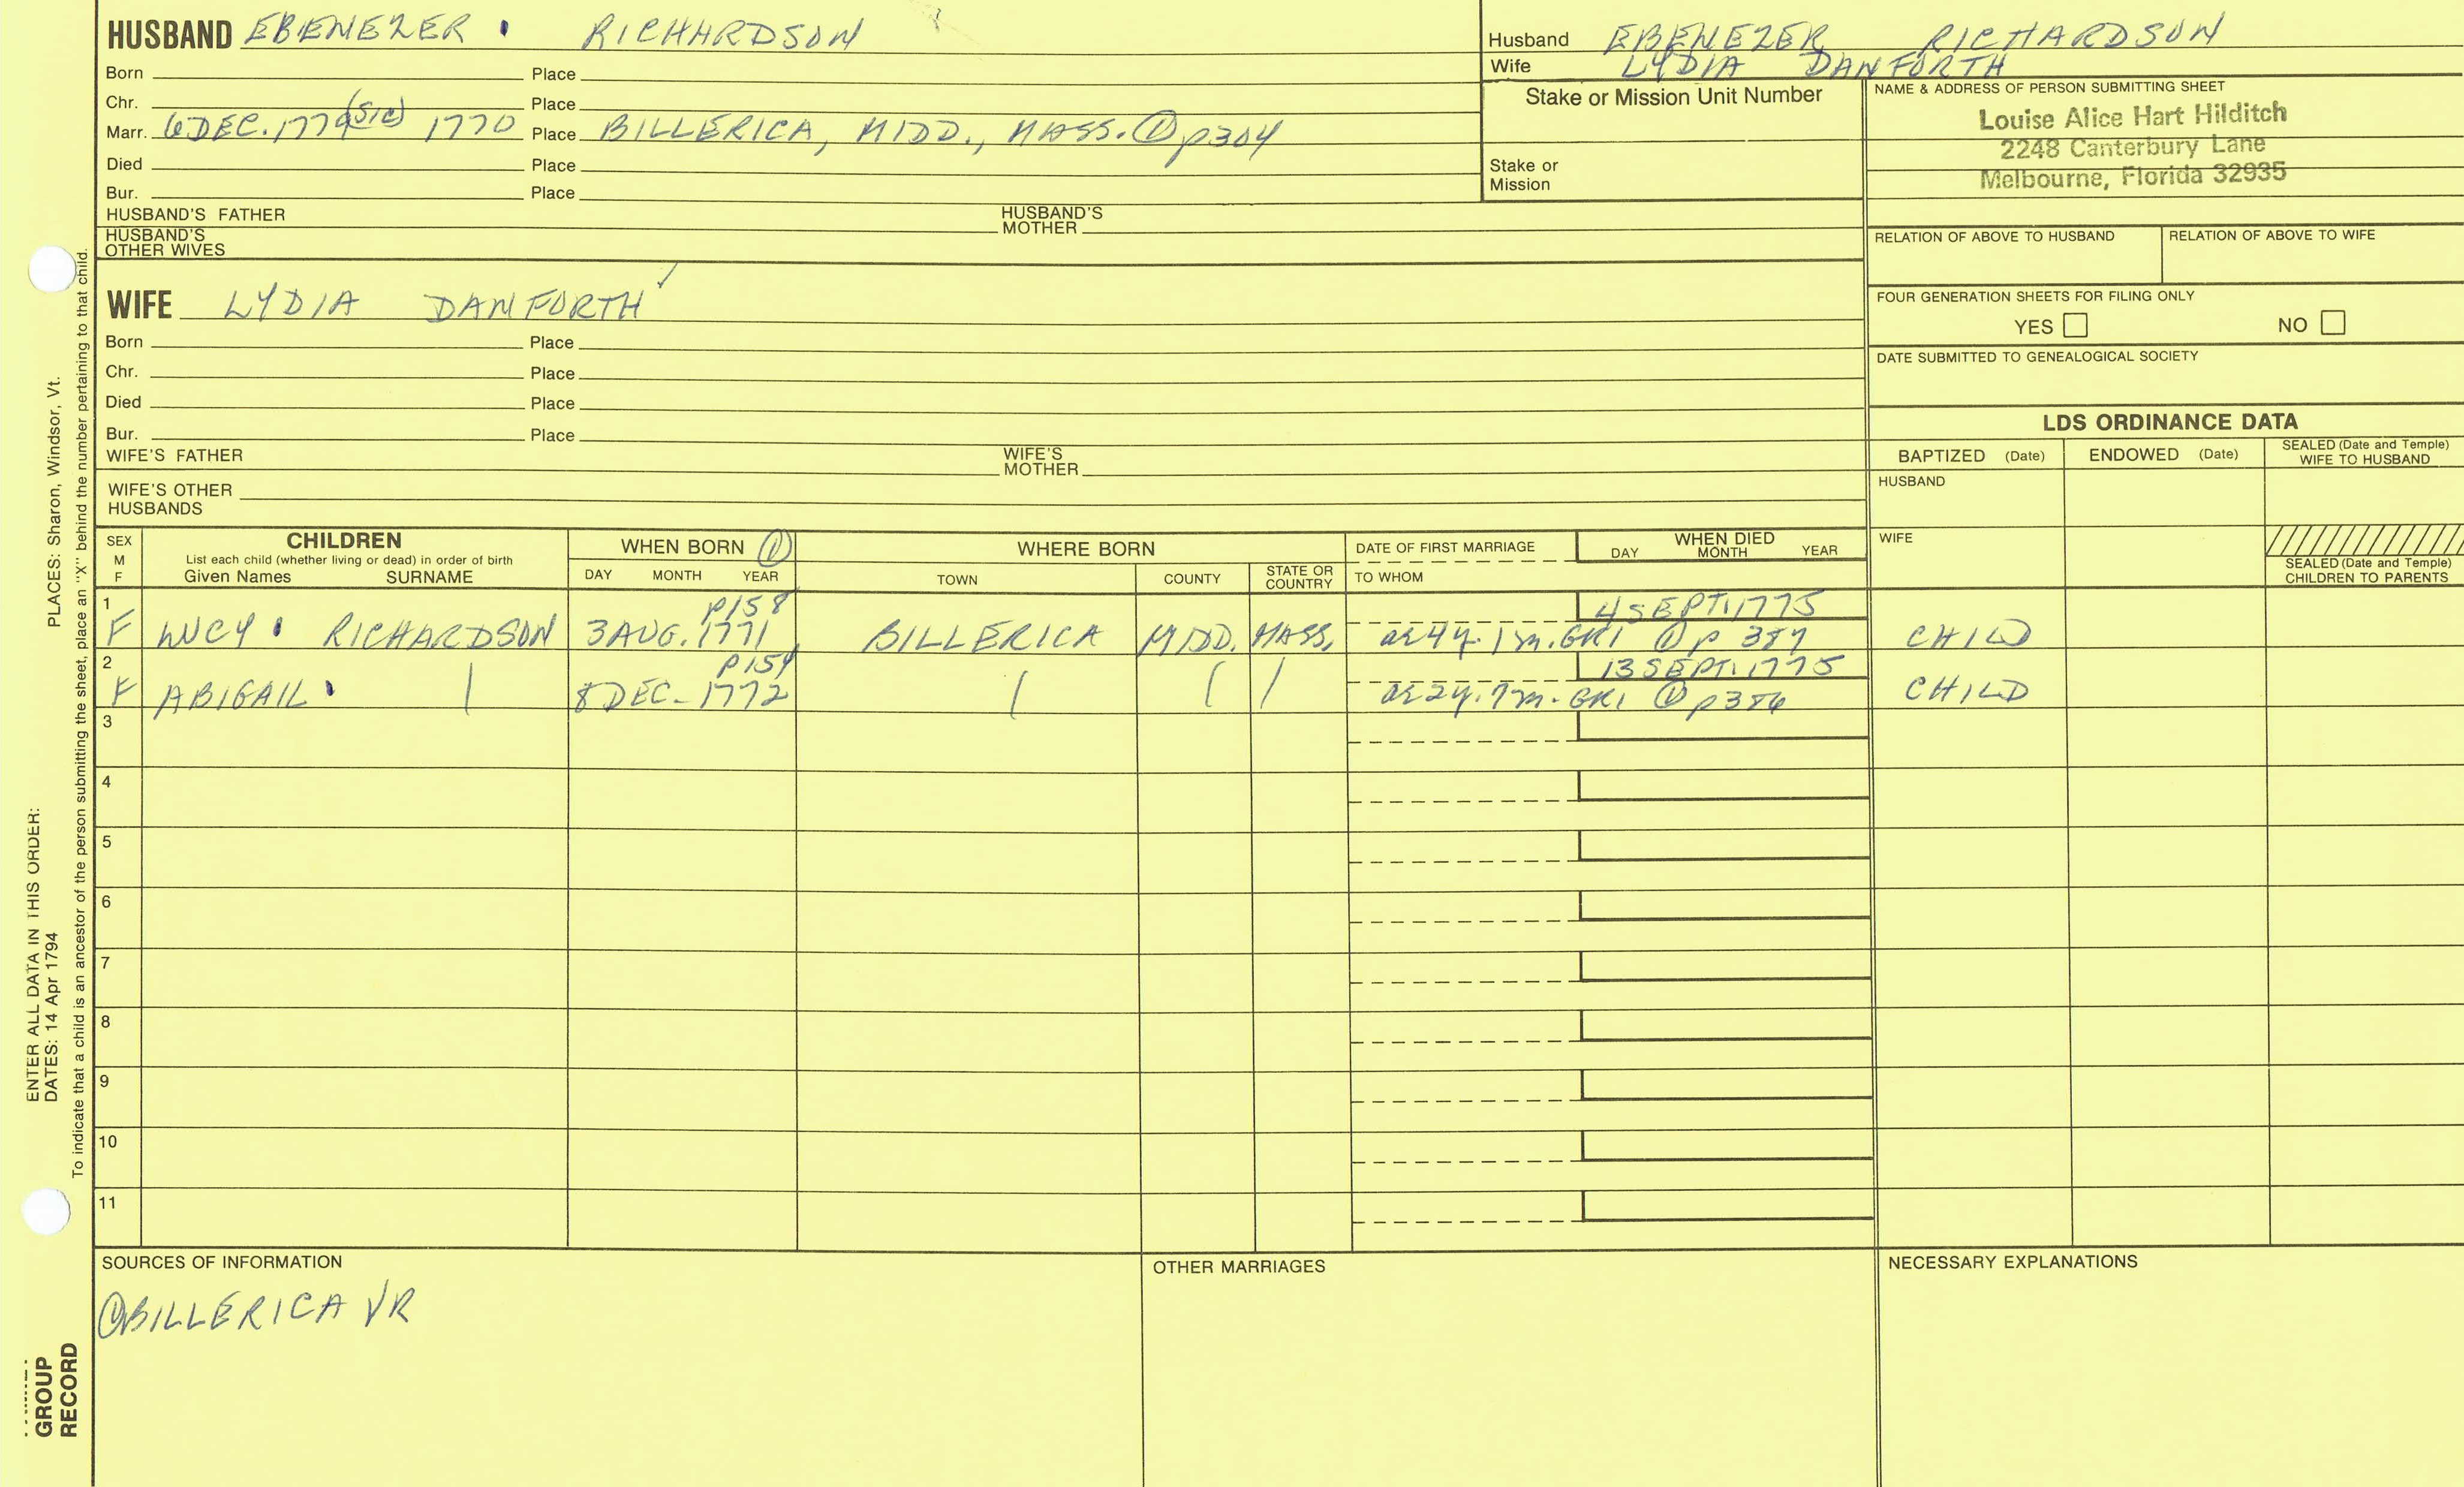 HUSBAND EBENEZER RICHARDSON
Born Place
Chr. Place
Marr. 6 DEC. 1779 (sic) 1770 Place BILLERICA, MIDD., MASS. ① p304
Died Place
Bur. Place
HUSBAND'S FATHER HUSBAND'S MOTHER
HUSBAND'S OTHER WIVES
Husband EBENEZER RICHARDSON
Wife LYDIA DANFORTH
Stake or Mission Unit Number
Stake or Mission
NAME & ADDRESS OF PERSON SUBMITTING SHEET
Louise Alice Hart Hilditch
2248 Canterbury Lane
Melbourne, Florida 32935
RELATION OF ABOVE TO HUSBAND RELATION OF ABOVE TO WIFE
FOUR GENERATION SHEETS FOR FILING ONLY
YES NO
DATE SUBMITTED TO GENEALOGICAL SOCIETY
WIFE LYDIA DANFORTH
Born Place
Chr. Place
Died Place
Bur. Place
WIFE'S FATHER WIFE'S MOTHER
WIFE'S OTHER HUSBANDS
LDS ORDINANCE DATA
BAPTIZED (Date) ENDOWED (Date) SEALED (Date and Temple) WIFE TO HUSBAND
HUSBAND
WIFE
SEALED (Date and Temple) CHILDREN TO PARENTS
SEX M F
CHILDREN
List each child (whether living or dead) in order of birth
Given Names SURNAME
WHEN BORN ①
DAY MONTH YEAR
WHERE BORN
TOWN COUNTY STATE OR COUNTRY
DATE OF FIRST MARRIAGE
TO WHOM
WHEN DIED
DAY MONTH YEAR
1 p158 4 SEPT. 1775
F LUCY RICHARDSON 3 AUG. 1771 BILLERICA MIDD. MASS. ae 4y. 1m. GR1 ① p 387 CHILD
2 p154 13 SEPT. 1775
F ABIGAIL | 8 DEC. 1772 | | | ae 2y. 9m. GR1 ① p386 CHILD
3
4
5
6
7
8
9
10
11
SOURCES OF INFORMATION
① BILLERICA VR
OTHER MARRIAGES
NECESSARY EXPLANATIONS
PLACES: Sharon, Windsor, Vt.
ENTER ALL DATA IN THIS ORDER:
DATES: 14 Apr 1794
To indicate that a child is an ancestor of the person submitting the sheet, place an "X" behind the number pertaining to that child.
GROUP
RECORD